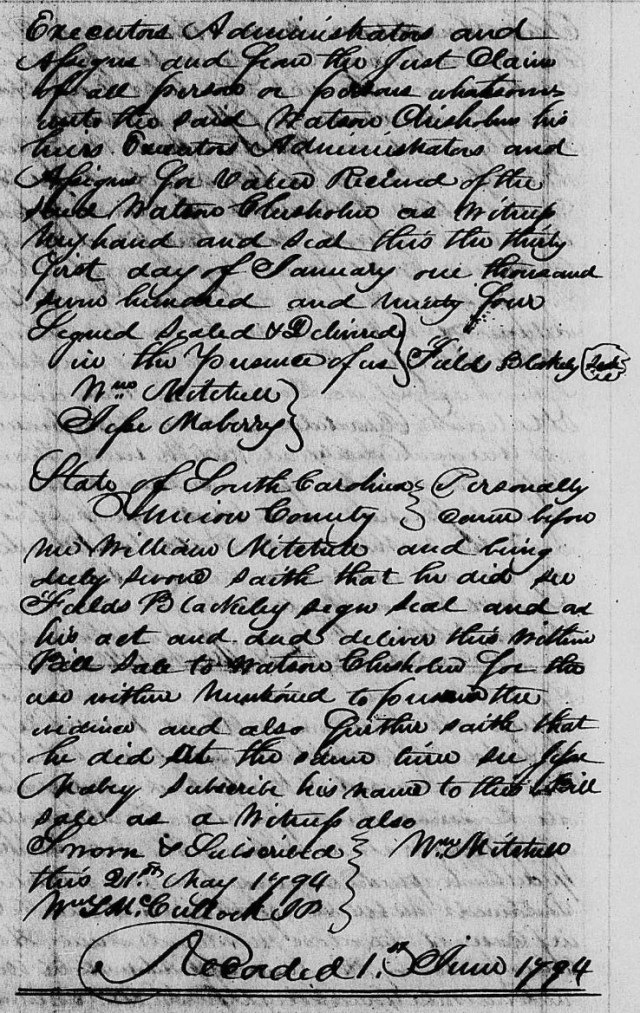 Executors Administrators and
Assigns and from the Just Claim
of all person or persons whatsoever
unto the said Watson Chisholm his
heirs Executors Administrators and
Assigns for Value Received of the
said Watson Chisholm as Witness
my hand and seal this the thirty
first day of January one thousand
seven hundred and ninety four
Signed Sealed & Delivered
in the presence of us Fields Blakely Seal
Wm Mitchell
Jesse Maberry
State of South Carolina Personally
Union County came before
me William Mitchell and being
duly sworn saith that he did see
Fields Blackeley sign seal and as
his act and deed deliver this within
Bill Sale to Watson Chisholm for the
use within mentioned to the
and also further saith that
he did at the same time see Jesse
Mabry subscribe his name to this Bill
sale as a Witness also
Sworn & Subscribed Wm Mitchell
this 21st May 1794
Wm McCullock JP
Recorded 1.st June 1794